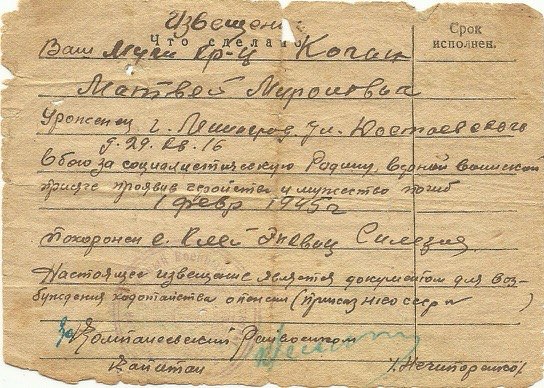 Извещени
Срок
исполнен.
Что сделано
Ваш муж кр-ц Коган
Матвей Миронович
Уроженец г. Ленинград, ул. Достоевского
д. 29. кв. 16
в бою за социалистическую Родину, верный воинской
присяге проявив геройство и мужество погиб
1 февр 1945 г
Похоронен с. Силезия
Настоящее извещение является документом для воз-
буждения ходотайства о пенсии (приказ НКО СССР №
)
за Райвоенком
Капитан /Нечипоренко/